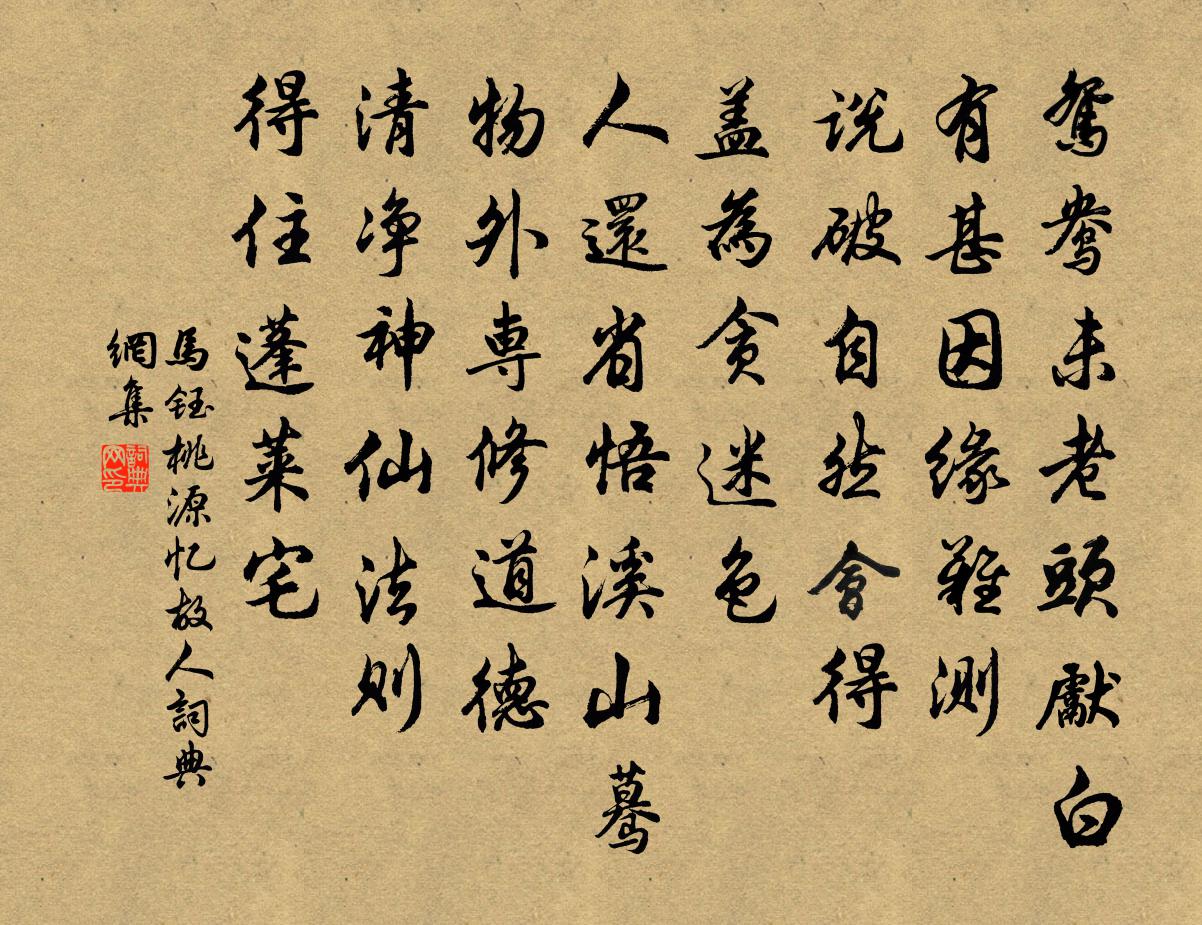 鴛鴦未老頭獻白
有甚因緣難測
说破自然會得
盖為贪迷色
人還省悟溪山驀
物外専修道德
清净神仙法则
得住蓬莱宅
馬钰桃源忆故人詞典
網集
詞典
网印